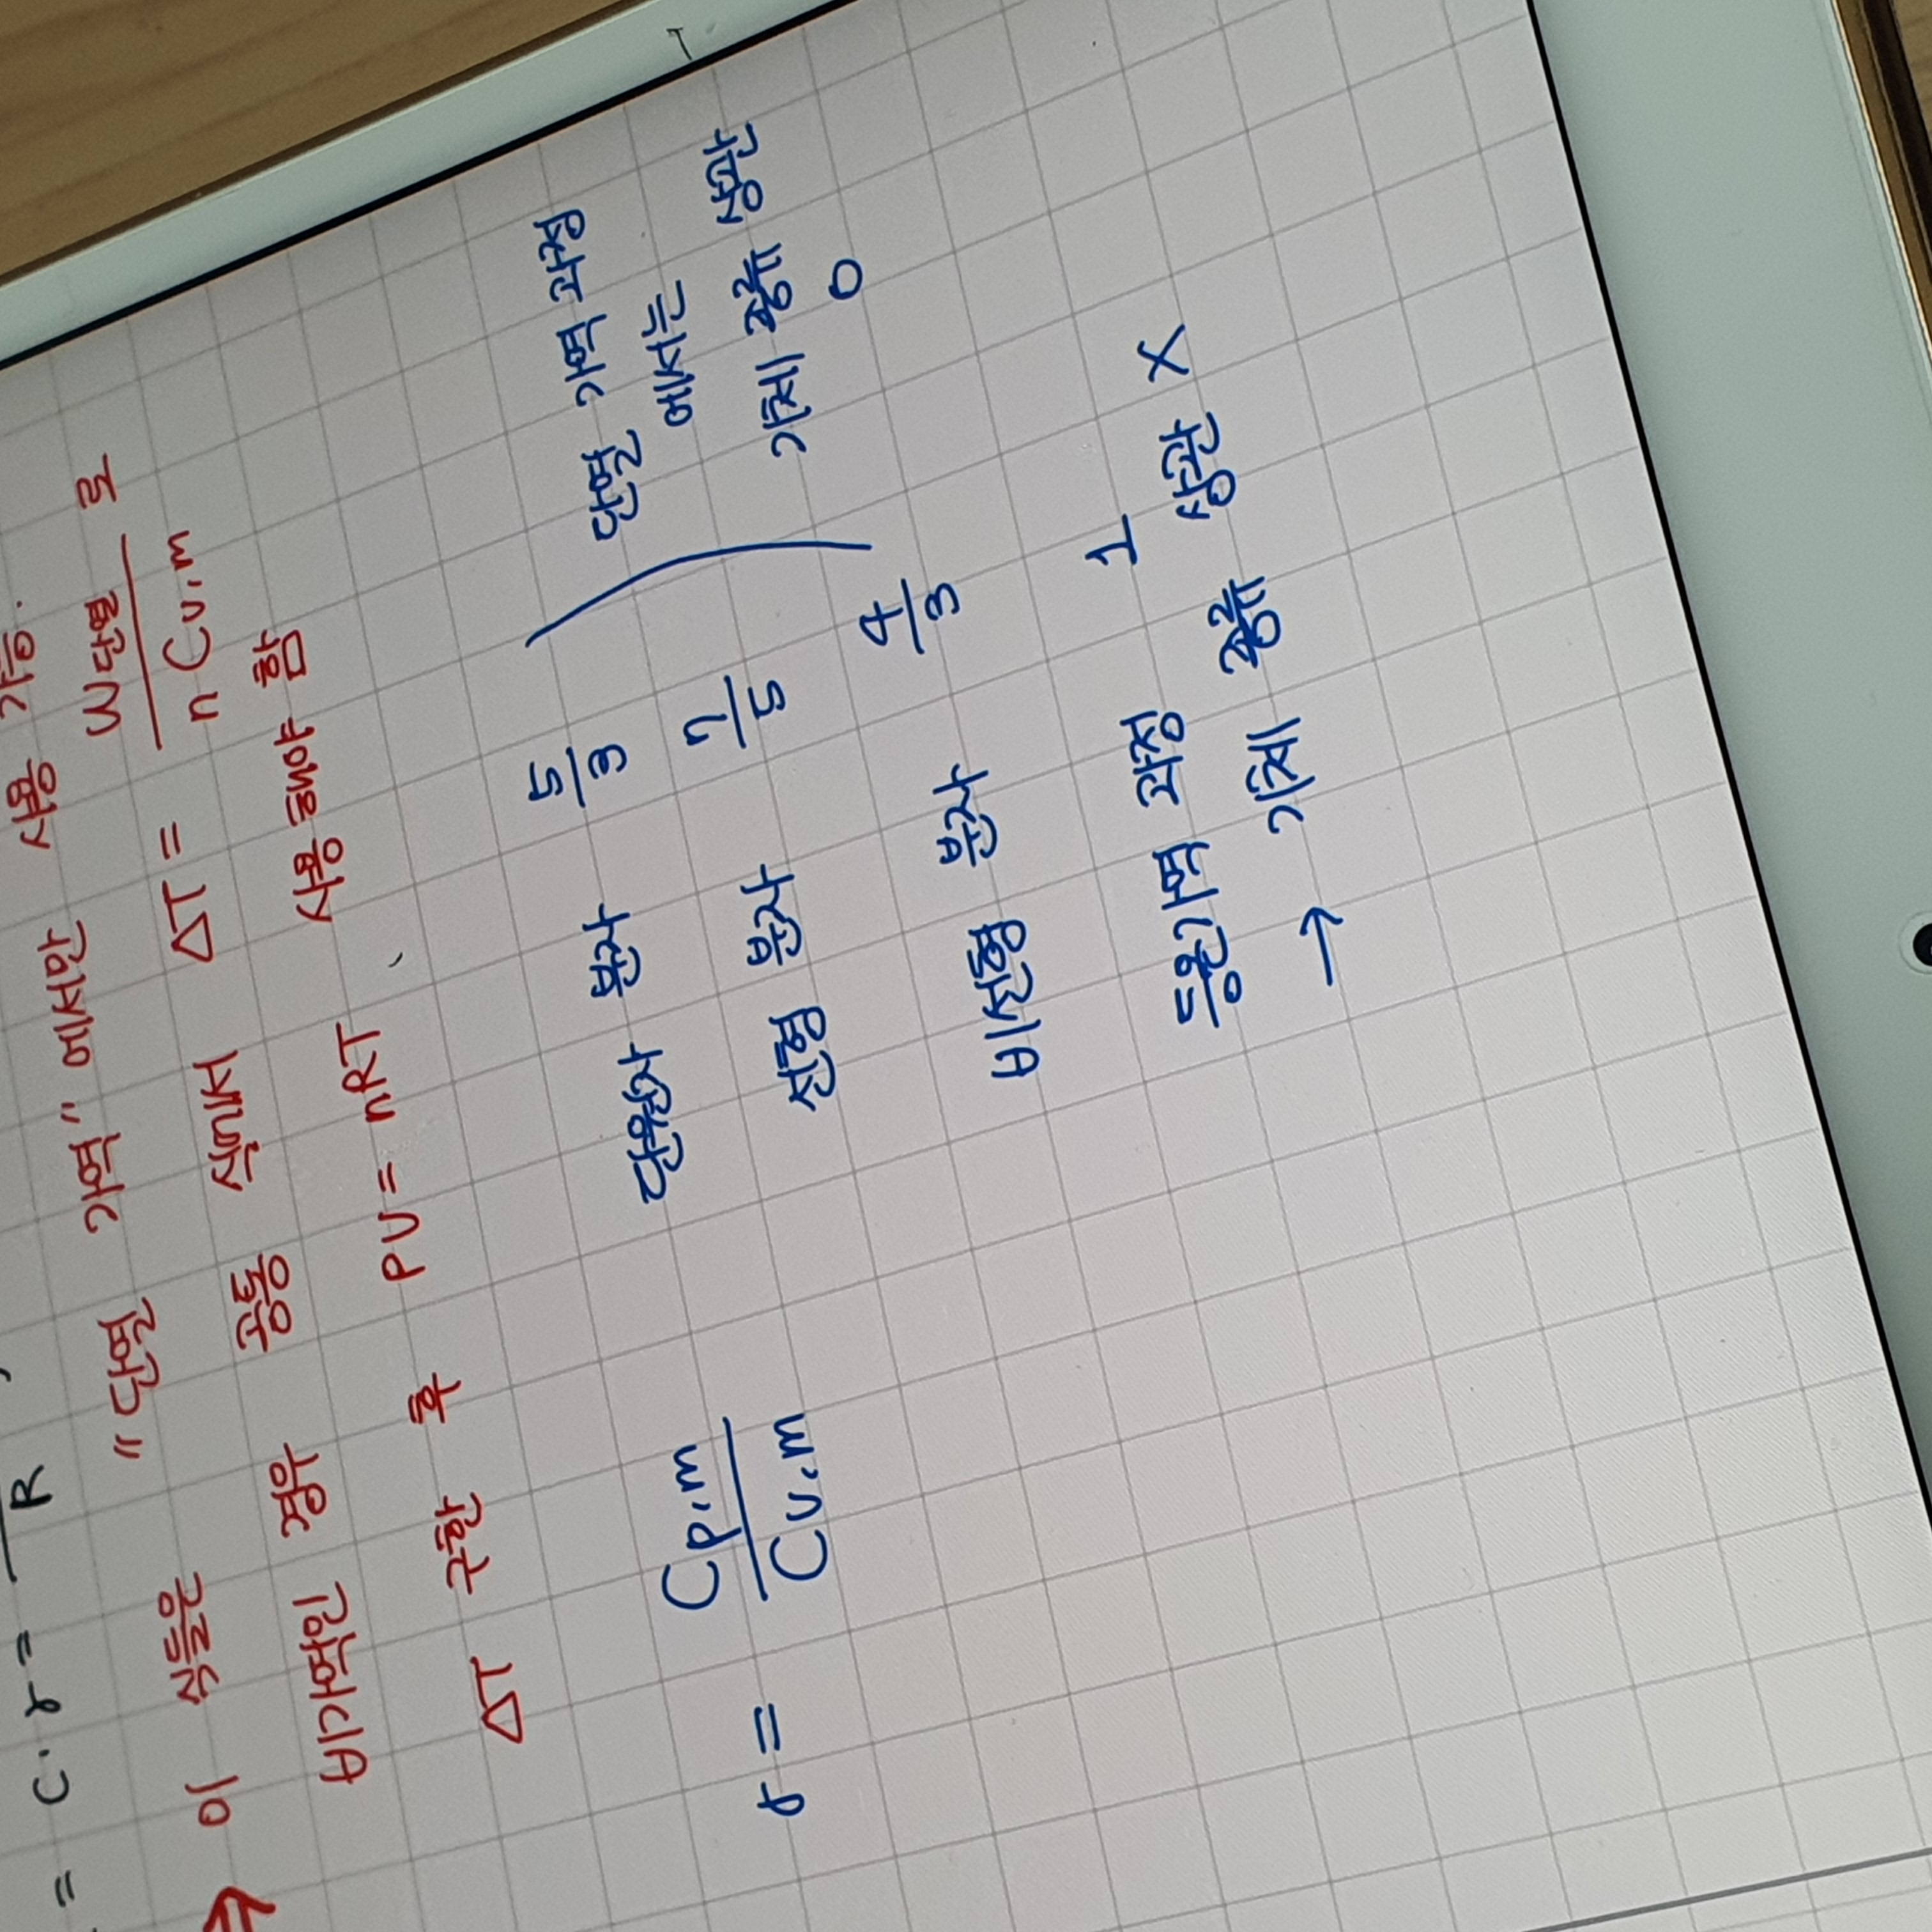 = C · γ = R
⇒ 이 식들은 "단열" 가역" 에서만 사용 가능.
비가역인 경우 공통 식인 ΔT = W단열 / n Cv,m 로
ΔT 구한 후 PV = nRT 사용해야 함
γ = Cp,m / Cv,m
단원자 분자 5/3
단열 가역 과정
에서는
기체 종류 상관 O
선형 분자 7/5
비선형 분자 4/3
등온가역 과정 1
→ 기체 종류 상관 X